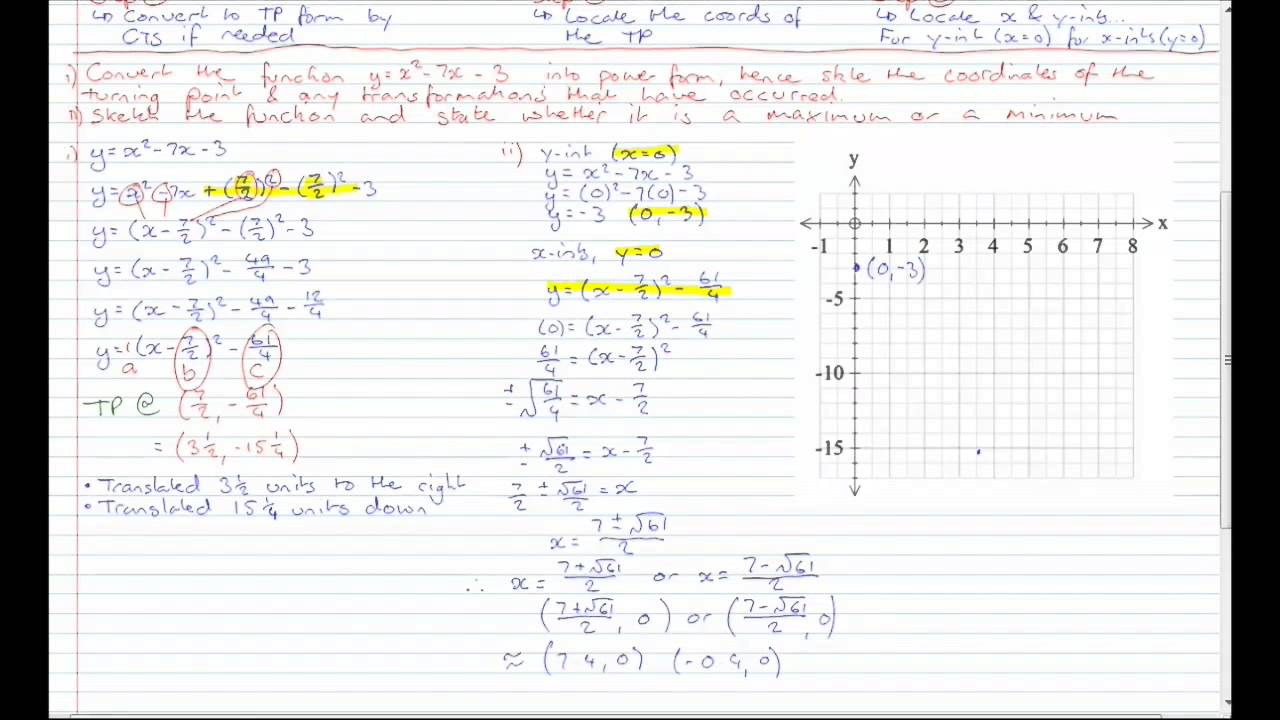 ↳ Convert to TP form by
CTS if needed
↳ Locate the coords of
the TP
↳ Locate x & y-ints...
For y-int (x=0) for x-ints (y=0)
i) Convert the function y=x²-7x-3 into power form, hence state the coordinates of the
turning point & any transformations that have occurred.
ii) Sketch the function and state whether it is a maximum or a minimum
i) y=x²-7x-3
y=x²-7x+(7/2)²-(7/2)²-3
y=(x-7/2)²-(7/2)²-3
y=(x-7/2)²-49/4-3
y=(x-7/2)²-49/4-12/4
y=1(x-7/2)²-61/4
a b c
TP @ (7/2, -61/4)
= (3 1/2, -15 1/4)
• Translated 3 1/2 units to the right
• Translated 15 1/4 units down
ii) y-int (x=0)
y=x²-7x-3
y=(0)²-7(0)-3
y=-3 (0,-3)
x-ints, y=0
y=(x-7/2)²-61/4
(0)=(x-7/2)²-61/4
61/4=(x-7/2)²
±√61/4=x-7/2
±√61/2=x-7/2
7/2±√61/2=x
x=7±√61/2
∴ x=7+√61/2 or x=7-√61/2
(7+√61/2, 0) or (7-√61/2, 0)
≈ (7 4, 0) (-0 4, 0)
y
x
-1 1 2 3 4 5 6 7 8
(0,-3)
-5
-10
-15